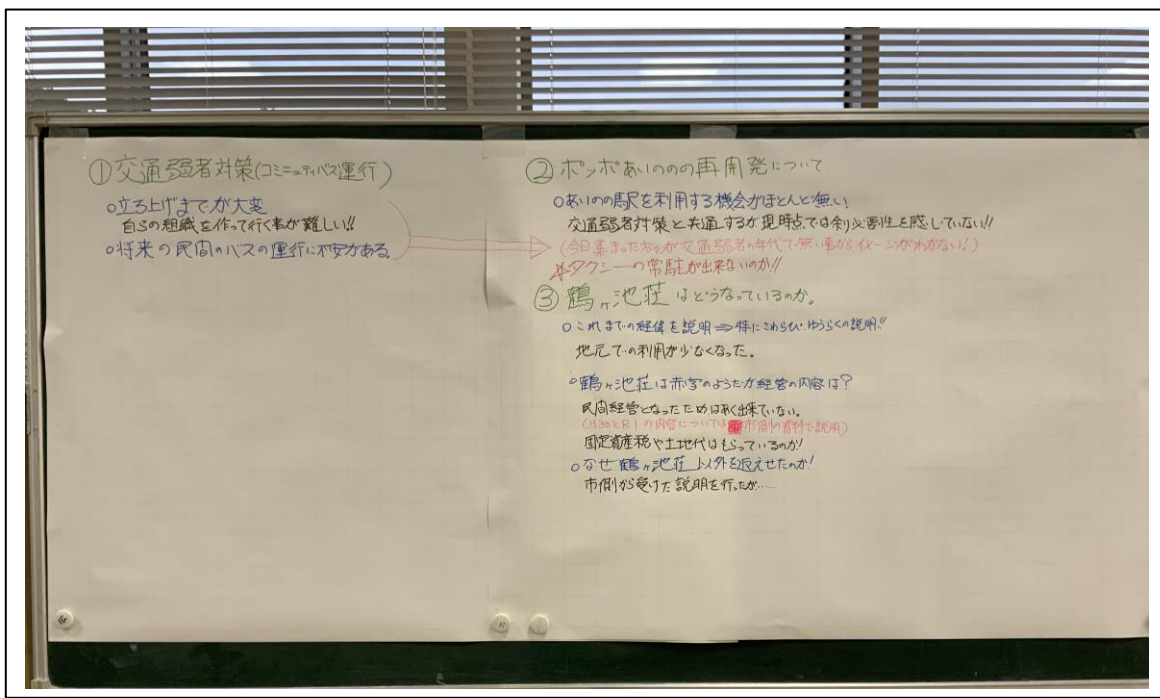 ①交通弱者対策(コミニュティバス運行)
○立ち上げまでが大変
自らの組織を作って行く事が難しい!!
○将来の民間のバスの運行に不安がある
②ポッポあいのの再開発について
○あいのの駅を利用する機会がほとんど無い!
交通弱者対策と共通するが現時点では余り必要性を感じていない!!
(今日集まった方々が交通弱者の年代で無い事からイメージがわかない!)
☆タクシーの常駐が出来ないのか!!
③鶴ヶ池荘はどうなっているのか。
○これまでの経偉を説明⇒特にさわらび、ゆうらくの説明!!
地元での利用が少なくなった。
○鶴ヶ池荘は赤字のようだが経営の内容は?
民間経営となったためはあく出来ていない。
(H30とR1の内容については市側の資料で説明)
固定資産税や土地代はもらっているのか!
○なぜ鶴ヶ池荘以外を返えせたのか!
市側から受けた説明を行ったが……